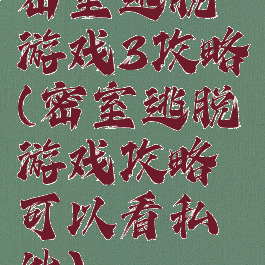 密室逃脱
游戏3攻略
(密室逃脱
游戏攻略
可以看私